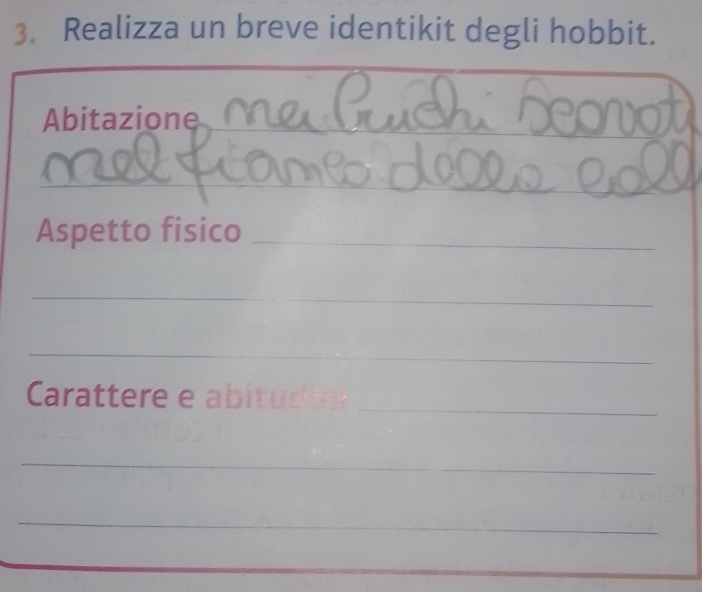 3. Realizza un breve identikit degli hobbit.
Abitazione nei buchi scavati
nel fianco delle coll
Aspetto fisico
Carattere e abitudini